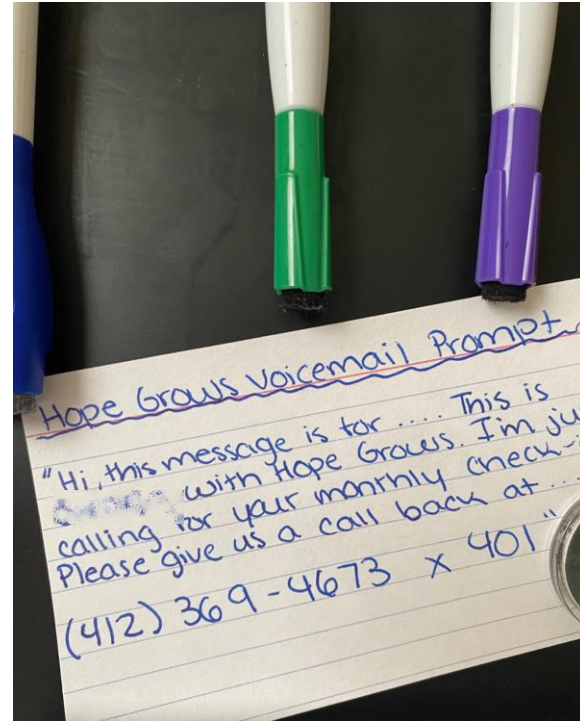 Hope Grows Voicemail Prompt
"Hi, this message is for .... This is
with Hope Grows. I'm
calling for your monthly check-
Please give us a call back at ...
(412) 369-4673 x 401"